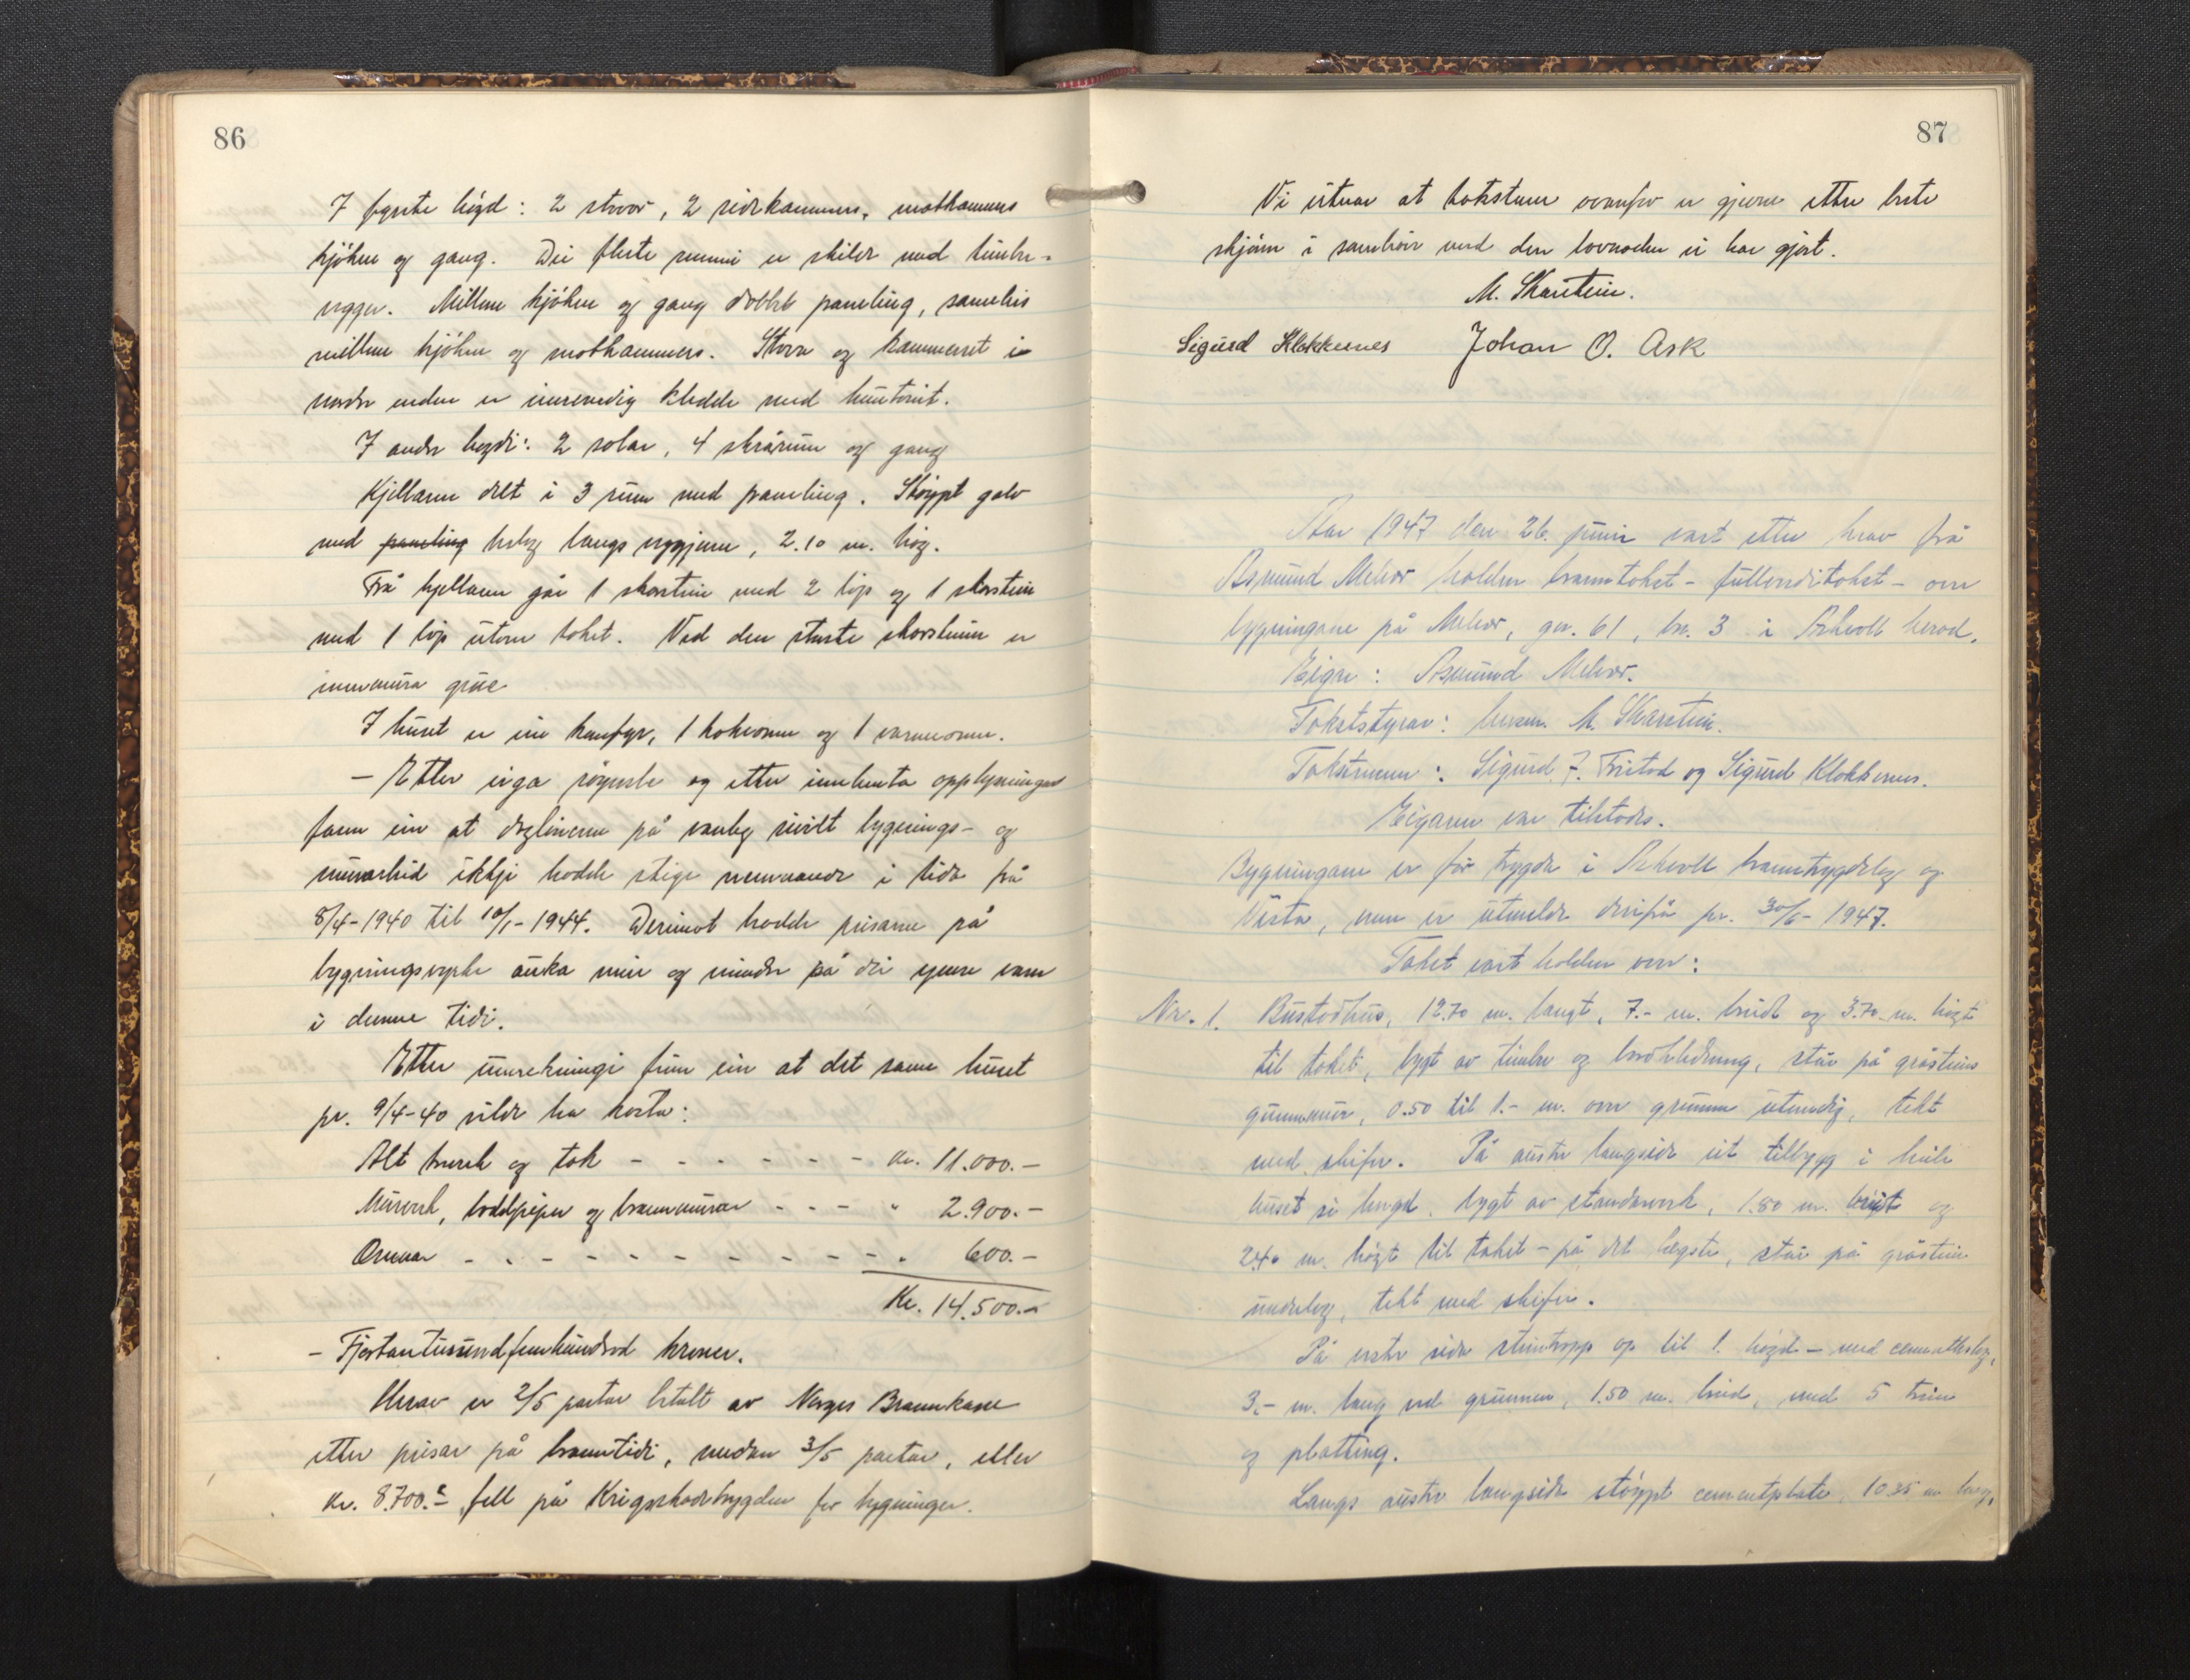 86
I fyrste høgd: 2 stovor, 2 sidekammers, matkammers
kjøken og gang. Dei fleste rummi er skilde med timbre-
veggar. Millom kjøken og gang dobbel paneling, sameleis
millom kjøken og matkammers. Stova og kammerset i
nordre enden er innvendig kledde med huntonit.
I andre høgdi: 2 salar, 4 skrårum og gang
Kjellaren delt i 3 rum med paneling. Støypt golv
med paneling belegg langs veggjene, 2.10 m. høg.
Frå kjellaren går 1 skorstein med 2 løp og 1 skorstein
med 1 løp utover taket. Ved den største skorsteinen er
innmura grue
I huset er ein komfyr, 1 kokeomn og 1 varmeomn.
- Etter eiga røynsle og etter innhenta opplysningar
fann ein at daglønene på vanleg sivilt bygnings- og
murarbeid ikkje hadde stige nemnande i tida frå
8/4-1940 til 10/1-1944. Derimot hadde prisane på
bygningsvyrke auka meir og mindre på dei ymse varer
i denne tidi.
Etter umrekningi finn ein at det same huset
pr. 9/4-40 vilde ha kosta:
Alt treverk og tak - - - - - - - kr. 11.000.-
Murverk, loddpiper og brannmurar - - - " 2.900.-
Omnar - - - - - - - - - - - " 600.-
Kr. 14.500.-
- Fjortantusundfemhundrad kroner.
Herav er 2/5 partar betalt av Norges Brannkasse
etter prisar på branntidi, medan 3/5 partar, eller
kr. 8.700.- fell på Krigsskadetrygden for bygninger.
87
Vi vitnar at takstene ovanfor er gjevne etter beste
skjøn i samhøve med den lovnaden vi har gjort.
M. Skarstein.
Sigurd Klokkernes Johan O. Ask
Aar 1947 den 26. juni vart etter krav frå
Asmund Melvær halden branntakst - fullverditakst - over
bygningane på Melvær, gnr. 61, bnr. 3 i Askvoll herad.
Eigar: Asmund Melvær.
Takststyrar: lensm. M. Skarstein.
Takstmenn: Sigurd J. Fristad og Sigurd Klokkernes.
Eigaren var tilstades.
Bygningane er før trygda i Askvoll branntrygdelag og
Vesta, men er utmelde derifrå pr. 30/6-1947.
Takst vart halden over:
Nr. 1. Bustadhus, 12.70 m. langt, 7.- m. breidt og 3.70 m. høgt
til taket, bygt av timbre og bordkledning, står på gråsteins
grunnmur, 0.50 til 1.- m. over grunnen utvendig, tekt
med skifer. På austre langside eit tilbygg i heile
huset si lengd, bygt av standarverk, 1.80 m. breidt og
2.40 m. høgt til taket - på det lægste, står på gråstein
underlag, tekt med skifer.
På vestre side steintropp op til 1. høgd - med cementbelegg,
3.- m. lang ved grunnen, 1.50 m. breid, med 5 trin
og platting.
Langs austre langside støypt cementplate, 10.35 m lang,